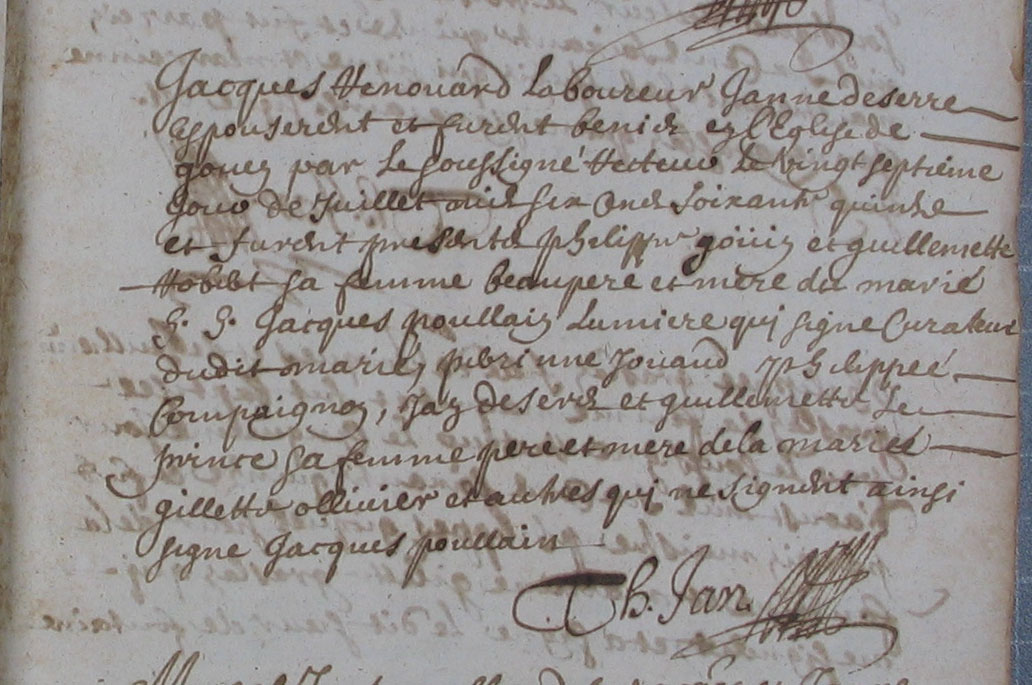 Jacques Renouard Laboureur Janne deserre
Espouserent et furent benis en l'Eglise de
goven par Le soussigné Recteur Le vingt septieme
Jour de Juillet mil six cens soixante quinze
et furent presents philippe goüin et guillemette
Hobet sa femme beaupere et mere du marié
h. h. Jacques poullain Lumiere qui signe Curateur
dudit marié, perrinne Jouaud philippe
Compaignon, Jan deserre et guillemette Le
prince sa femme pere et mere de la mariée
gillette ollivier et autres qui ne signent ainsi
signe Jacques poullain
Th. Jan.